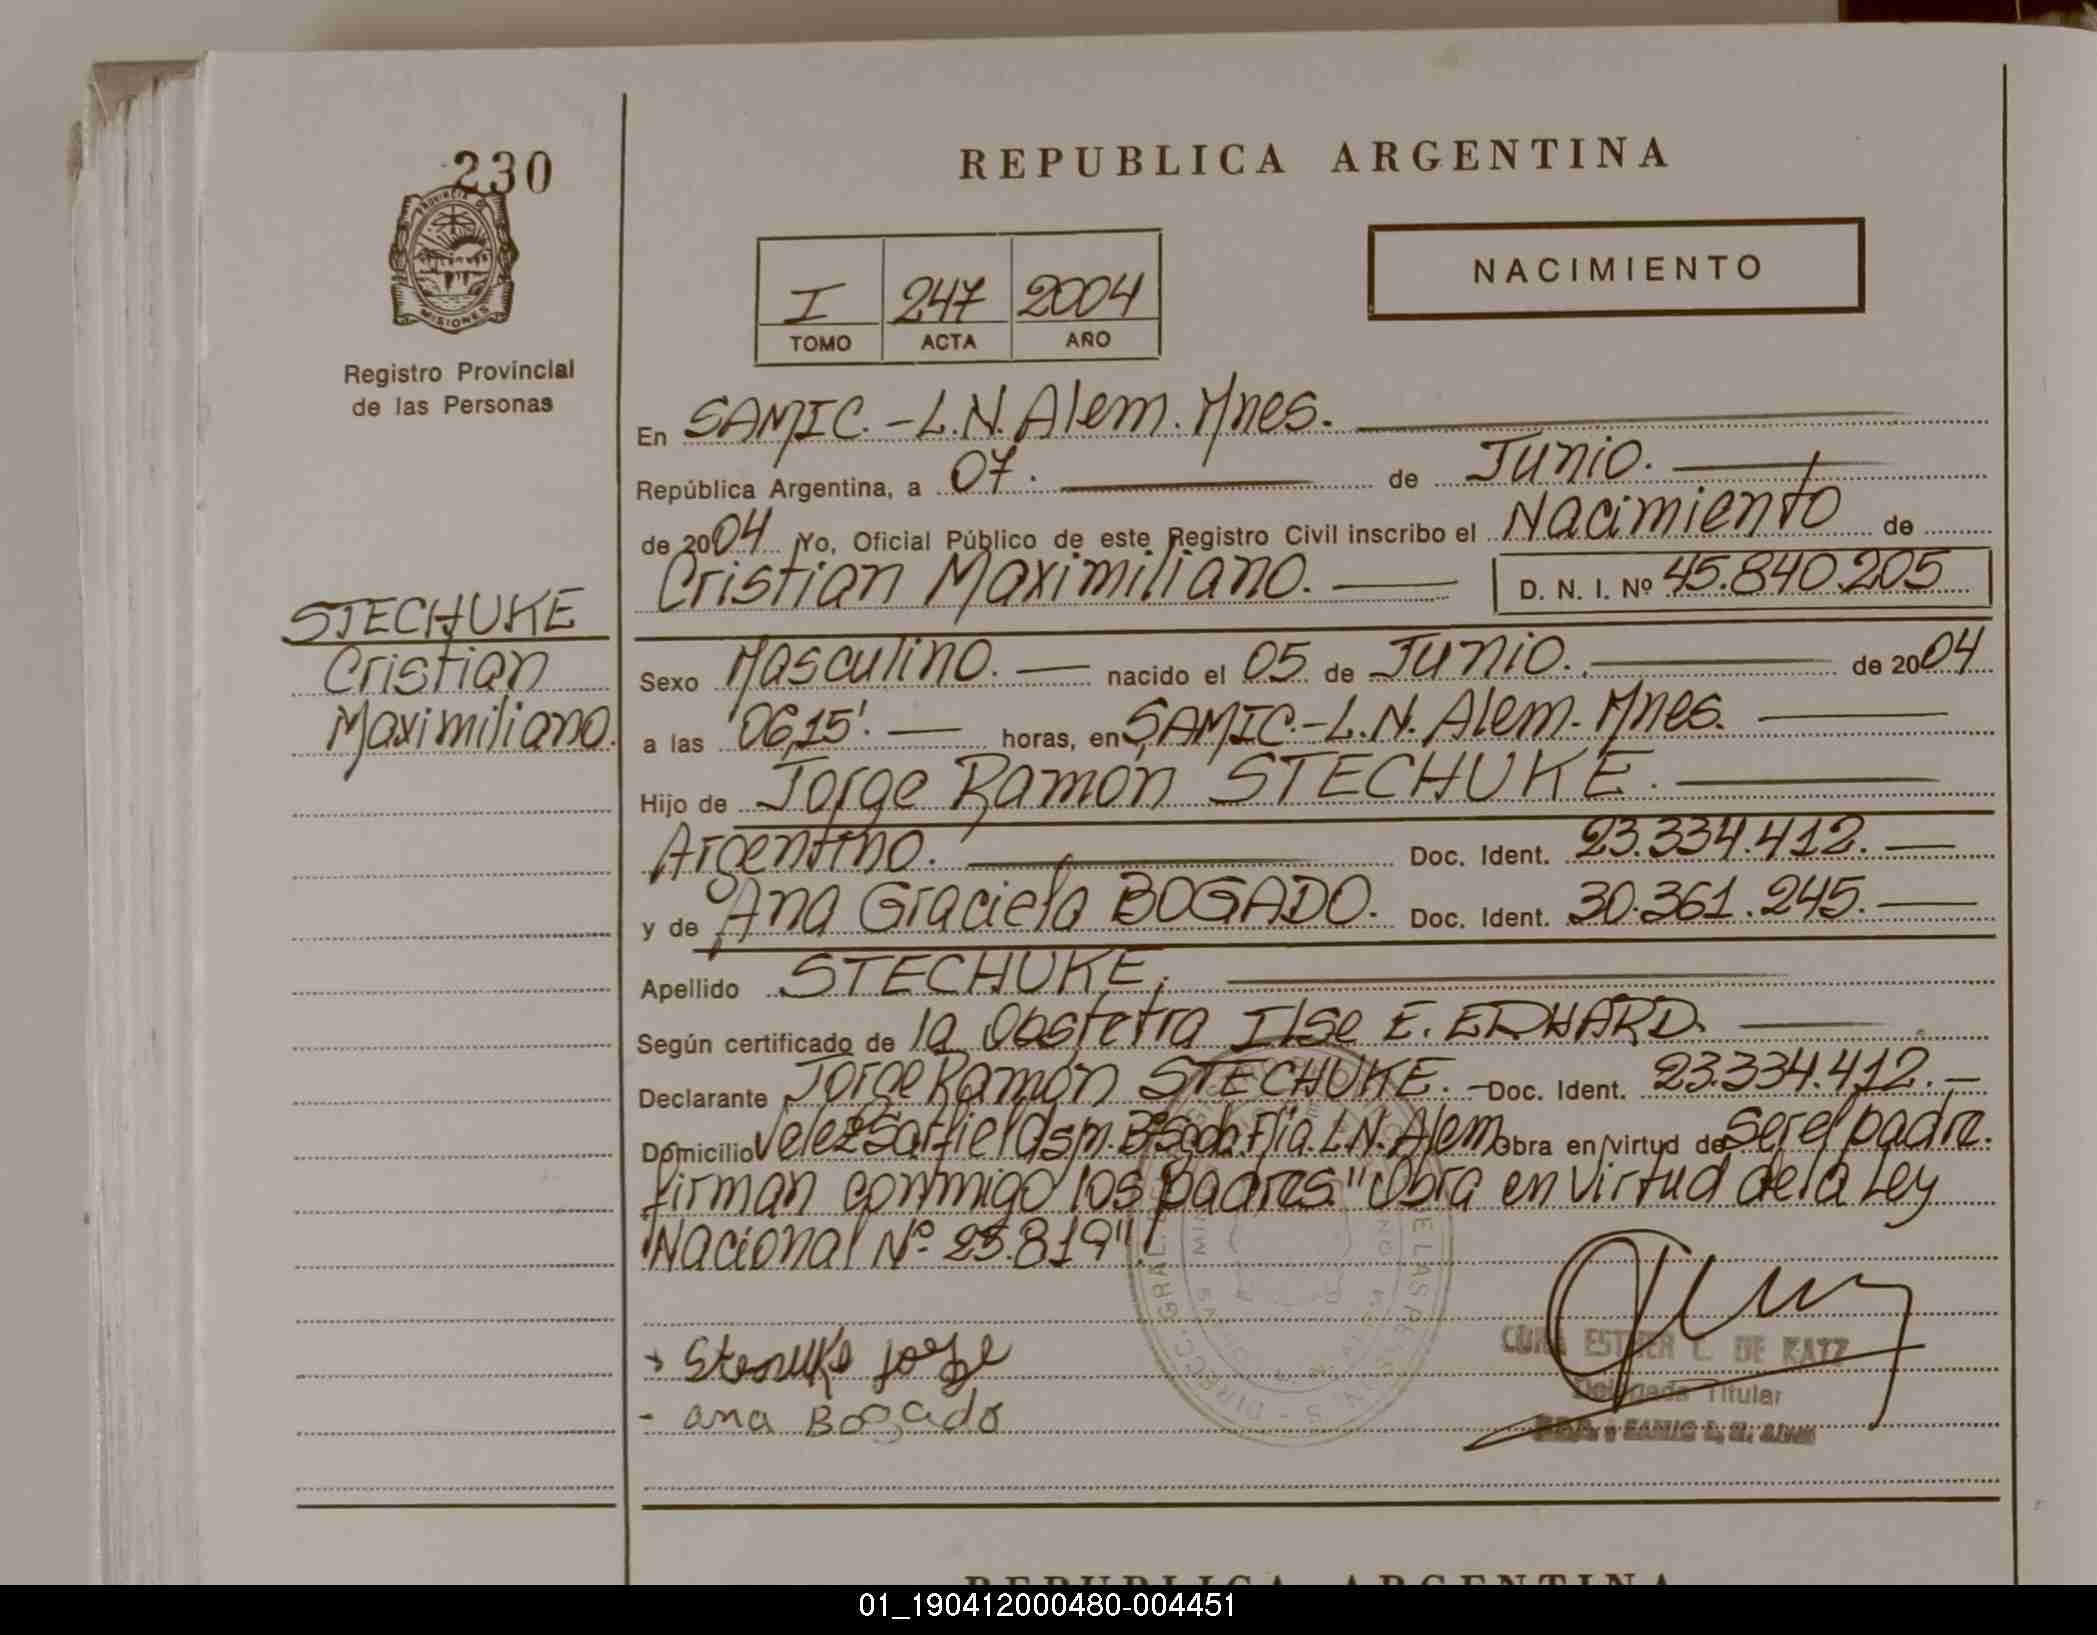 230
PROVINCIA DE
MISIONES
Registro Provincial
de las Personas
STECHUKE
Cristian
Maximiliano.
REPUBLICA ARGENTINA
I 247 2004
TOMO ACTA AÑO
NACIMIENTO
En SAMIC.-L.N.Alem.Mnes.
República Argentina, a 07. de Junio.
de 2004 Yo, Oficial Público de este Registro Civil inscribo el Nacimiento de
Cristian Maximiliano. D. N. I. Nº 45.840.205
Sexo Masculino. nacido el 05 de Junio. de 2004
a las '06,15'. horas, en SAMIC.-L.N. Alem.-Mnes.
Hijo de Jorge Ramón STECHUKE.
Argentino. Doc. Ident. 23.334.412.
y de Ana Graciela BOGADO. Doc. Ident. 30.361.245.
Apellido STECHUKE.
Según certificado de la Obstetra Ilse E. ERHARD.
Declarante Jorge Ramón STECHUKE. Doc. Ident. 23.334.412.
Domicilio Velez Sarfield sm. L.N. Alem Obra en virtud de Ser el padre.
firman conmigo los padres. "Obra en virtud de la Ley
Nacional Nº 25.819".
Stechuke Jorge
ana Bogado
ESTHER C. DE KATZ
Delegada Titular
SAMIC L. N. Alem
REPUBLICA ARGENTINA
01_190412000480-004451